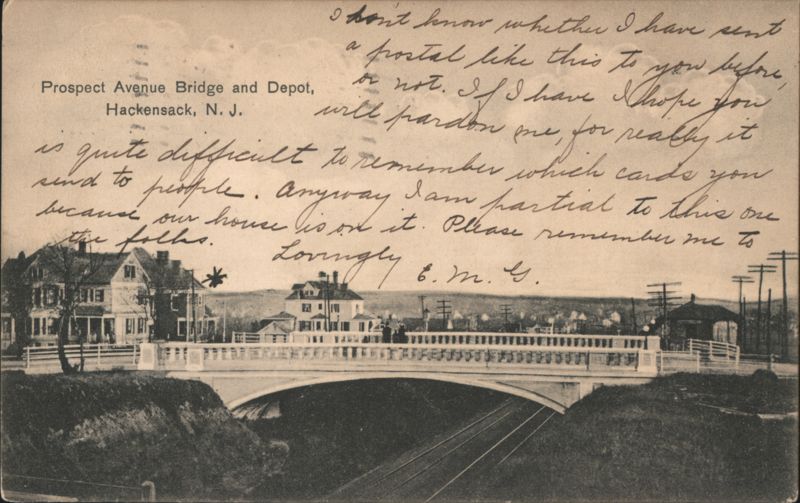 I don't know whether I have sent
a postal like this to you before,
or not. If I have I hope you
will pardon me, for really it
Prospect Avenue Bridge and Depot,
Hackensack, N. J.
is quite difficult to remember which cards you
send to people. Anyway I am partial to this one
because our house is on it. Please remember me to
the folks.
Lovingly
E. M. G.
*